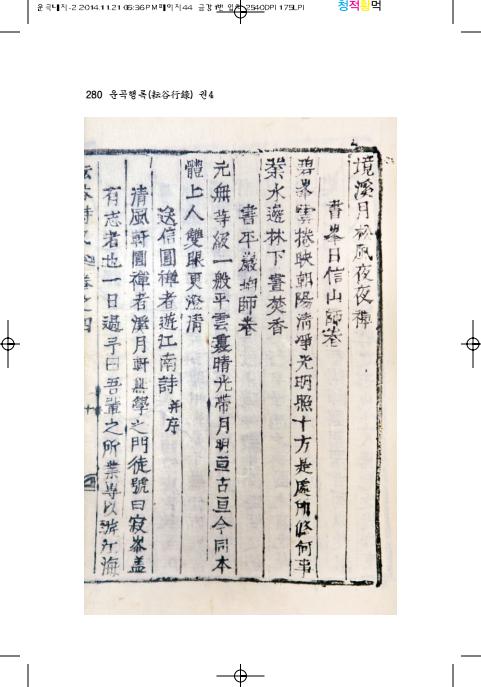 운곡대지-2 2014.11.21 05:36 PM 페이지44
2540DPI 175LPI
청적황먹
280 운곡행록(耘谷行錄) 권4
境溪月松風夜夜禪
書峯日信山師卷
碧峯雲捲映朝陽清淨光明照十方是處所修何事
業水邊林下晝焚香
書平巖均師卷
元無等級一般平雲戛晴光帶月明亘古亘今同本
體上人雙眼更澄清
送信圓禪者遊江南詩 并序
清風軒圓禪者溪月軒無學之門徒號曰寂峯盖
有志者也一日過予曰吾輩之所業專以游江海
卷之四
十